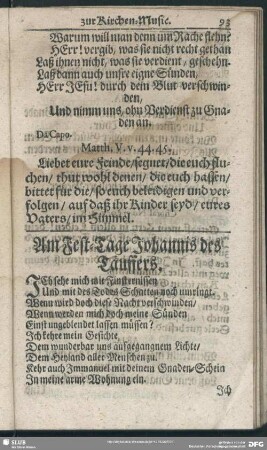 zur Kirchen-Music. 93
Warum will man denn um Rache flehn?
HErr! vergib, was sie nicht recht gethan
Laß ihnen nicht, was sie verdient, geschehn.
Laß dann auch unsre eigne Sünden,
HErr JEsu! durch dein Blut verschwin-
den,
Und nimm uns, ohn Verdienst zu Gna-
den an.
Da Capo.
Matth. V. v. 44. 45.
Liebet eure Feinde/ segnet/ die euch flu-
chen/ thut wohl denen/ die euch hassen/
bittet für die/ so euch beleidigen und ver-
folgen/ auf daß ihr Kinder seyd/ eures
Vaters/ im Himmel.
Am Fest-Tage Johannis des
Täuffers,
ICh sehe mich die Finsternissen
Und mit des Todes Schatten noch umringt.
Wenn wird doch diese Nacht verschwinden/
Wenn werden mich doch meine Sünden
Einst ungeblendet lassen müssen?
Ich kehre mein Gesichte,
Dem wunderbar uns aufgegangnem Lichte/
Dem Heyland aller Menschen zu.
Kehr auch Immanuel mit deinem Gnaden-Schein
In meine arme Wohnung ein.
Ich
SLUB
DFG